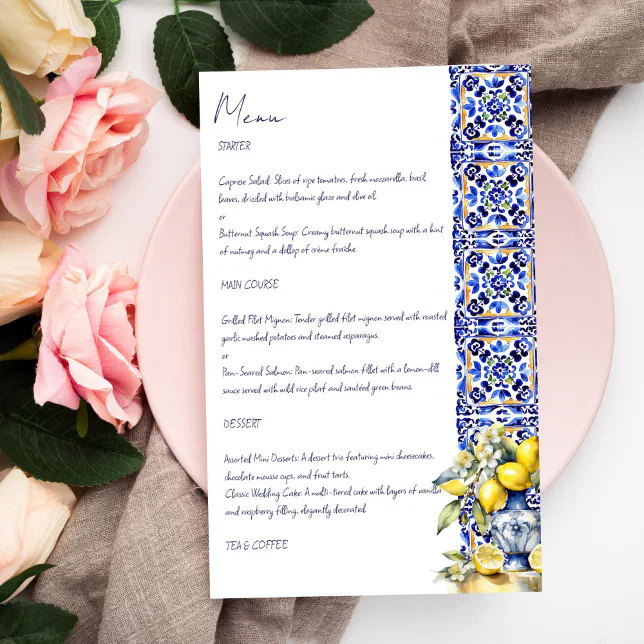 Menu
STARTER
Caprese Salad: Slices of ripe tomatoes, fresh mozzarella, basil
leaves, drizzled with balsamic glaze and olive oil.
or
Butternut Squash Soup: Creamy butternut squash soup with a hint
of nutmeg and a dollop of crème fraîche.
MAIN COURSE
Grilled Filet Mignon: Tender grilled filet mignon served with roasted
garlic mashed potatoes and steamed asparagus.
or
Pan-Seared Salmon: Pan-seared salmon fillet with a lemon-dill
sauce served with wild rice pilaf and sautéed green beans.
DESSERT
Assorted Mini Desserts: A dessert trio featuring mini cheesecakes,
chocolate mousse cups, and fruit tarts.
Classic Wedding Cake: A multi-tiered cake with layers of vanilla
and raspberry filling, elegantly decorated.
TEA & COFFEE